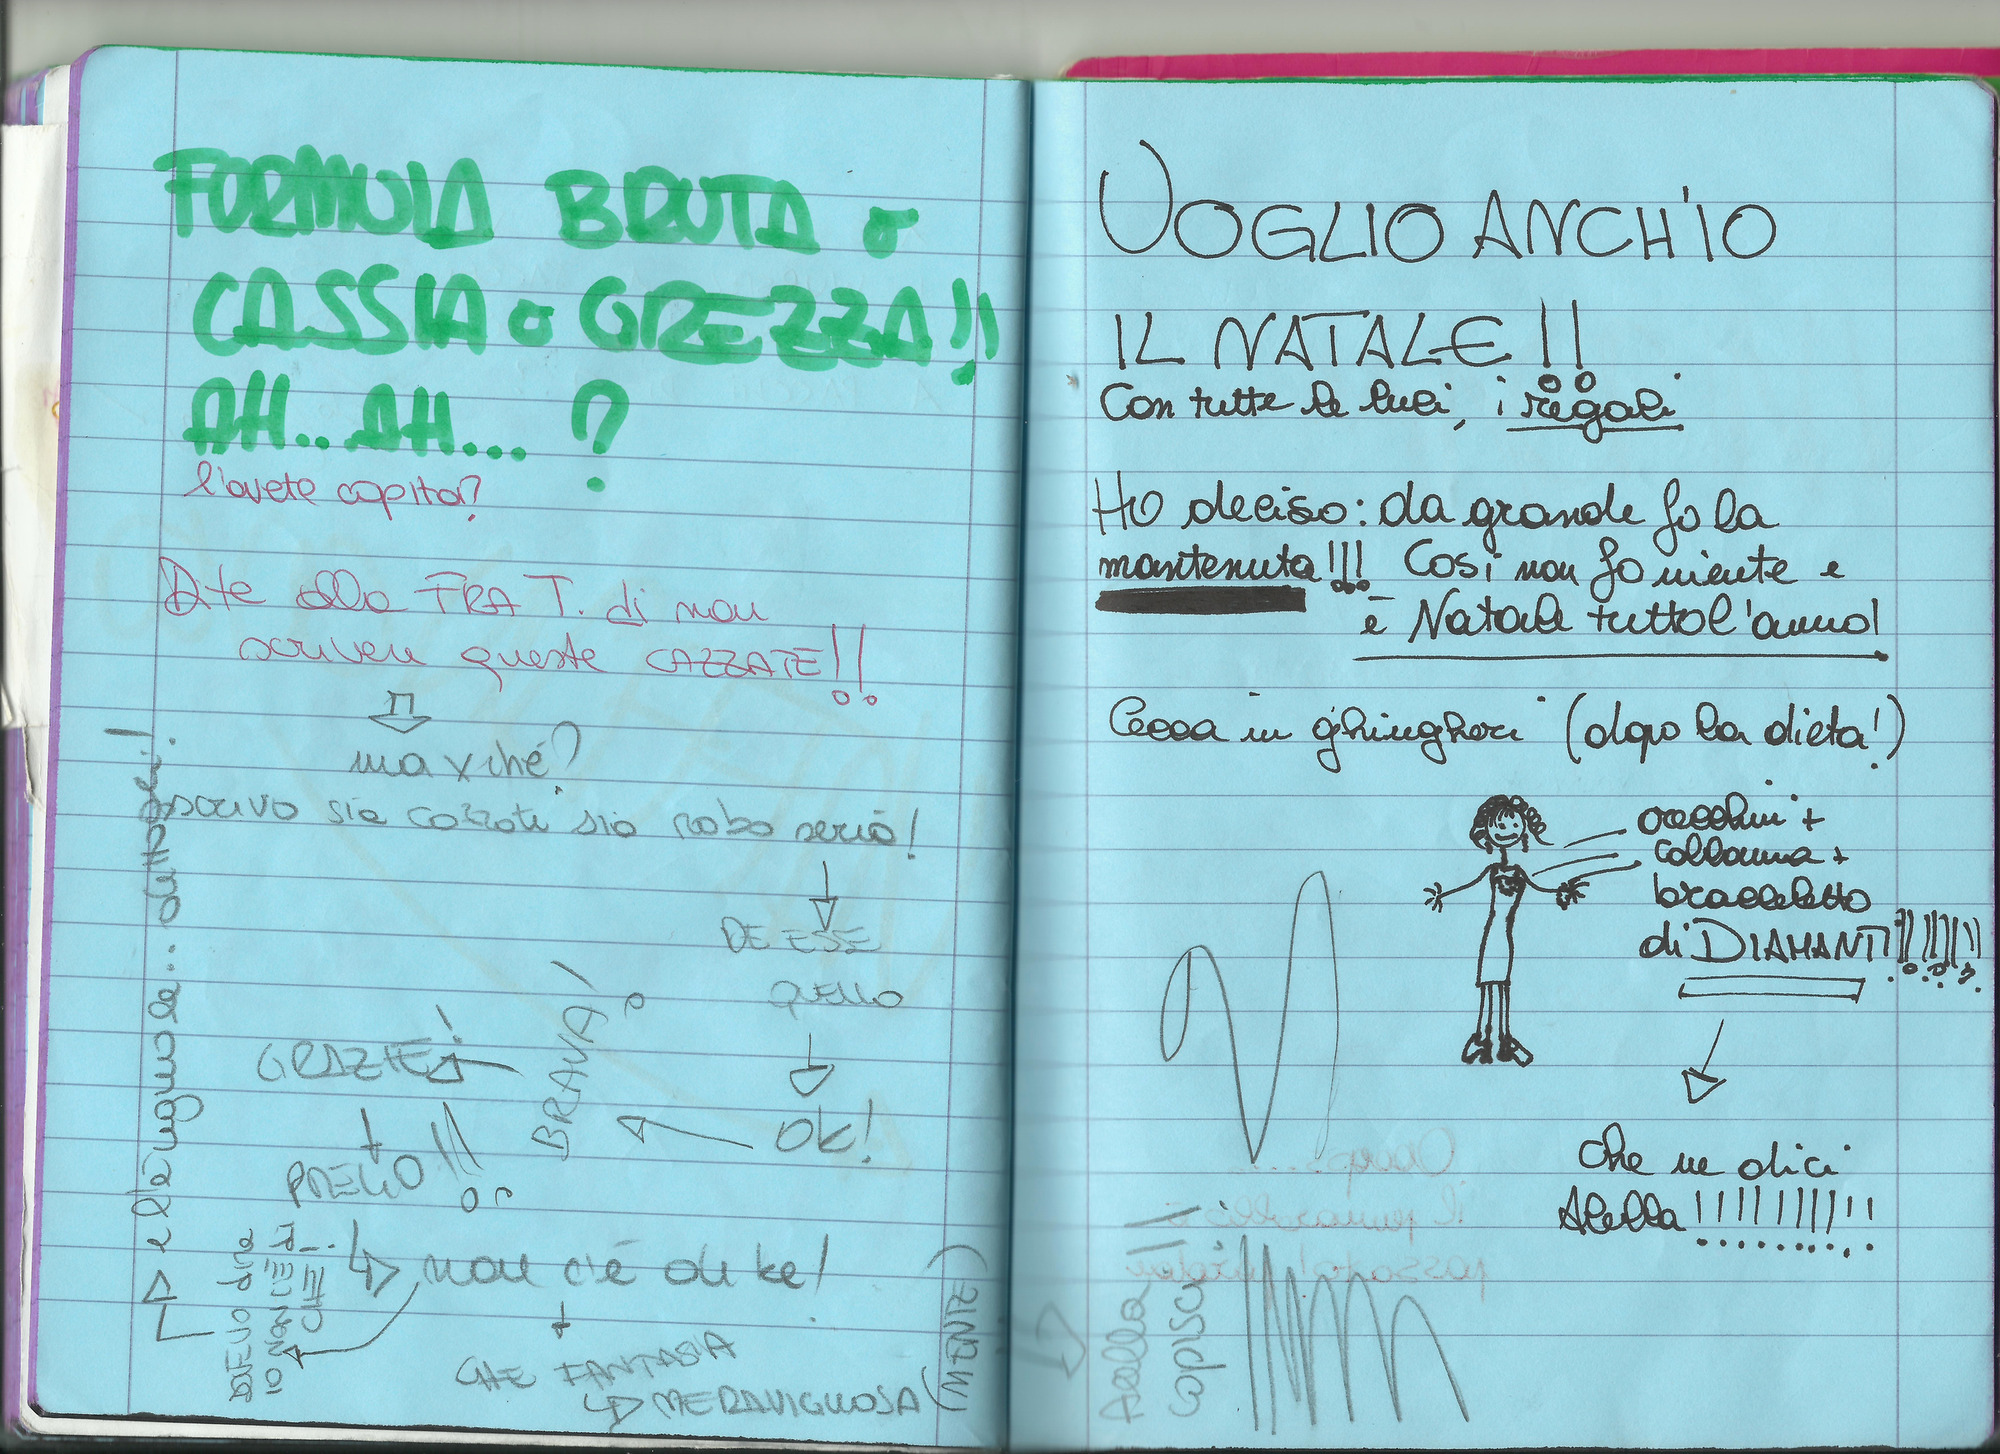 FORMULA BRUTA o
CASSIA o GREZZA!!
AH.. AH... ?
l'avete capita?
Dite alla FRA T. di non
scrivere queste CAZZATE!!
ma xché?
scrivo sia cazzate sia roba seria!
DEV'ESSE
QUELLO
OK!
BRAVA!
GRAZIE!
PREGO!!
non c'è di ke!
CHE FANTASIA
MERAVIGLIOSA (MENTE)
QUELLO
IO NON
CHE
e l'è uguale..
VOGLIO ANCH'IO
IL NATALE!!
Con tutte le luci, i regali
Ho deciso: da grande fo la
mantenuta!!! Così non fo niente e
è Natale tutto l'anno!
Cecca in ghingheri (dopo la dieta!)
orecchini +
collanna +
braccletto
di DIAMANTI!!!!!!!
Che ne dici
Alella!!!!!!!!!!
Ooops.....
il pennarello è
passato!